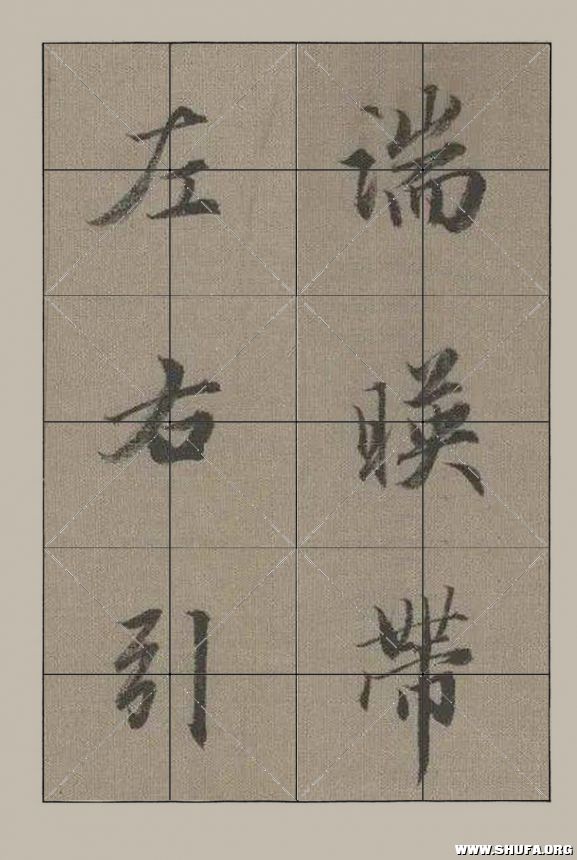 湍暎帶
左右引
WWW.SHUFA.ORG